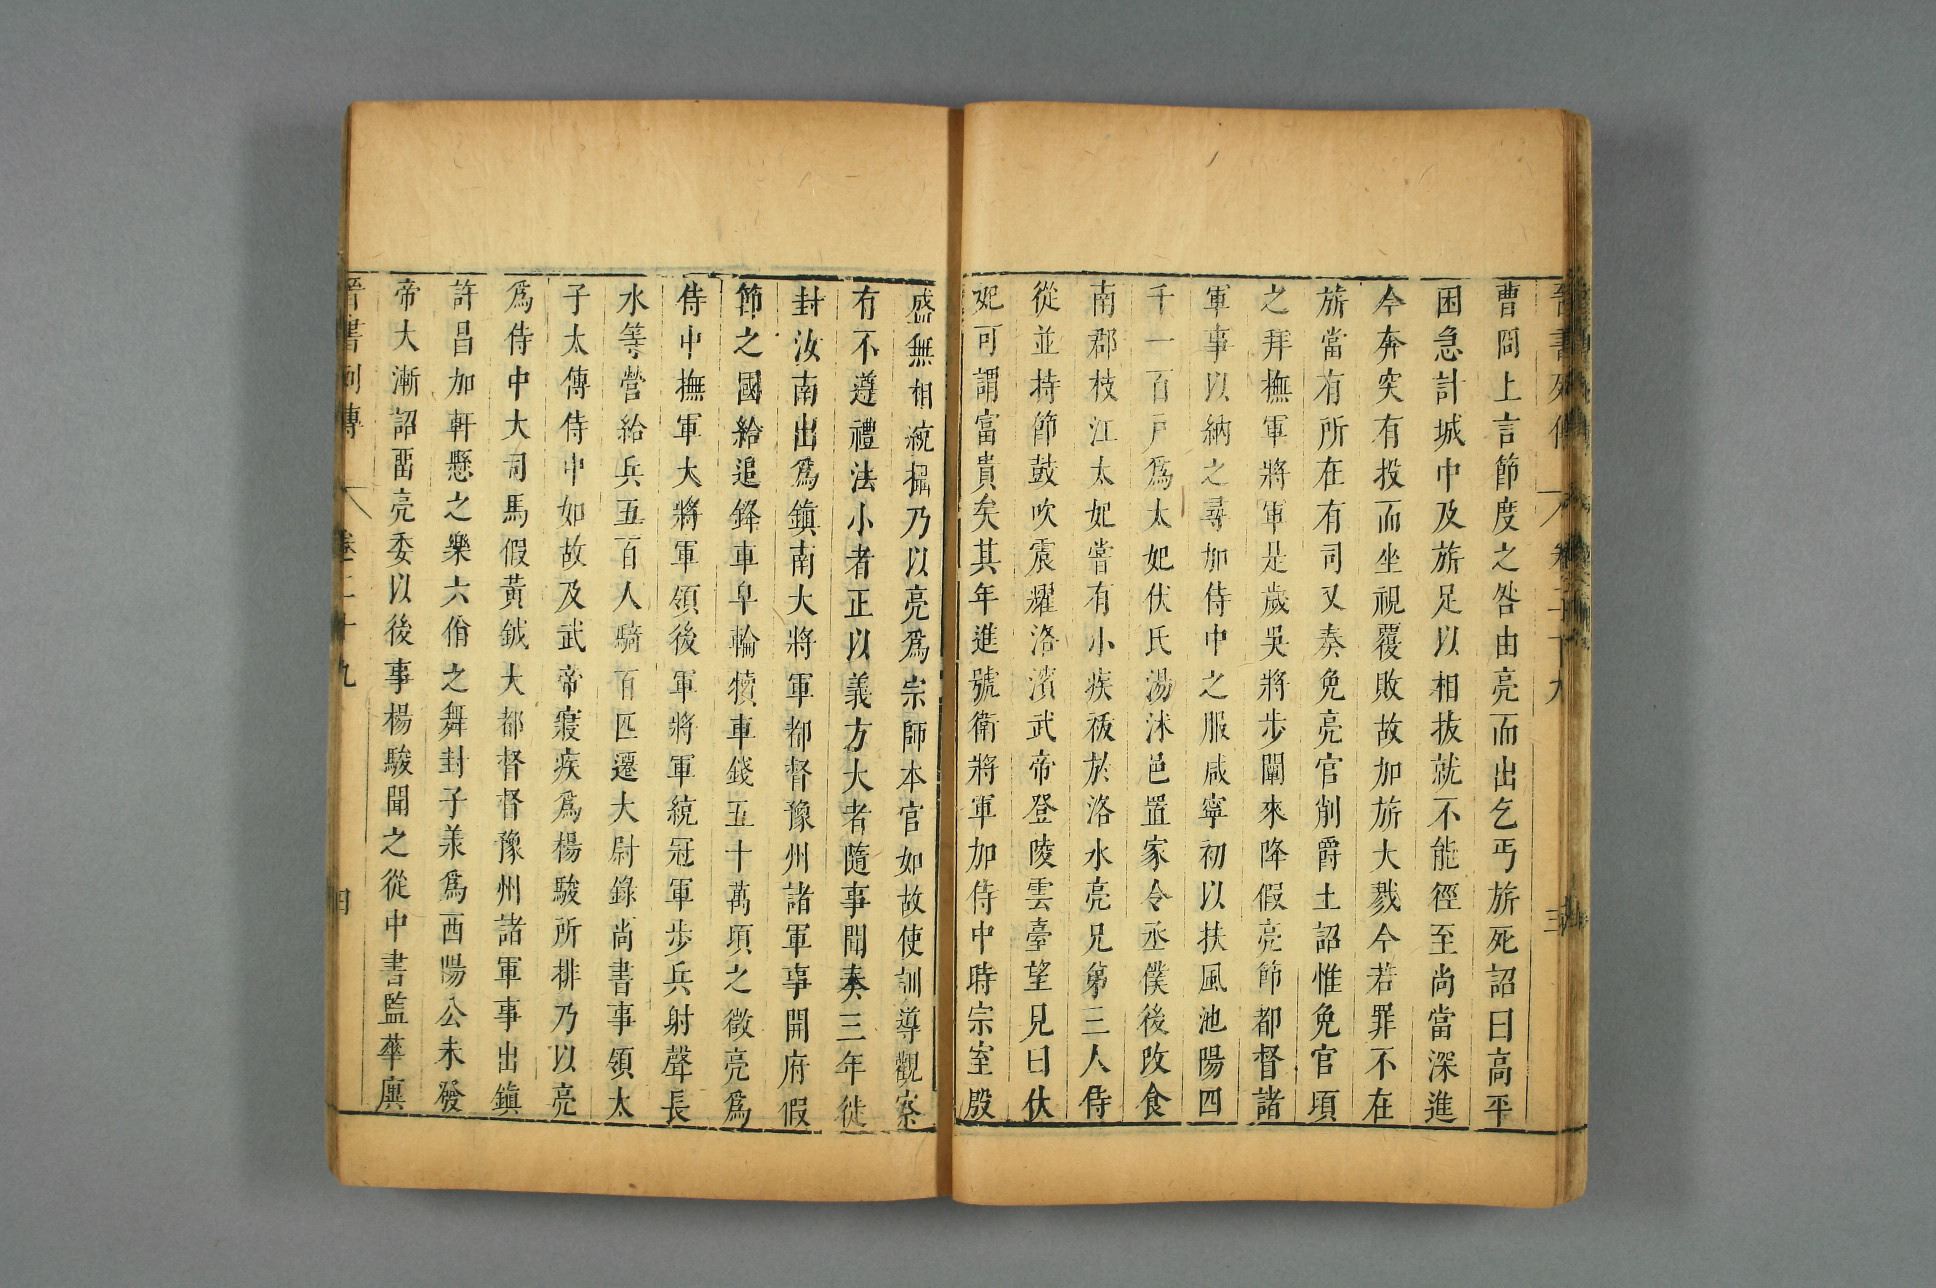 晉書列傳 卷二十九 三
曹冏上言節度之咎由亮而出乞丐旂死詔曰高平
困急計城中及旂足以相拔就不能徑至尚當深進
今奔突有投而坐視覆敗故加旂大戮今若罪不在
旂當有所在有司又奏免亮官削爵土詔惟免官頃
之拜撫軍將軍是歲吳將步闡來降假亮節都督諸
軍事以納之尋加侍中之服咸寧初以扶風池陽四
千一百戶爲太妃伏氏湯沐邑置家令丞僕後改食
南郡枝江太妃嘗有小疾祓於洛水亮兄第三人侍
從並持節鼓吹震耀洛濱武帝登陵雲臺望見曰伏
妃可謂富貴矣其年進號衛將軍加侍中時宗室殷
盛無相統攝乃以亮爲宗師本官如故使訓導觀察
有不遵禮法小者正以義方大者隨事聞奏三年徙
封汝南出爲鎮南大將軍都督豫州諸軍事開府假
節之國給追鋒車皁輪犢車錢五十萬頃之徵亮爲
侍中撫軍大將軍領後軍將軍統冠軍步兵射聲長
水等營給兵五百人騎百匹遷大尉錄尚書事領太
子太傅侍中如故及武帝寢疾爲楊駿所排乃以亮
爲侍中大司馬假黃鉞大都督督豫州諸軍事出鎮
許昌加軒懸之樂六佾之舞封子羕爲西陽公未發
帝大漸詔畱亮委以後事楊駿聞之從中書監華廙
晉書列傳 卷二十九 四